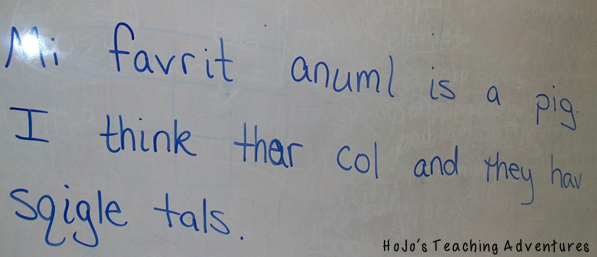 Mi favrit anuml is a pig.
I think thar col and they hav
sqigle tals.
HoJo's Teaching Adventures